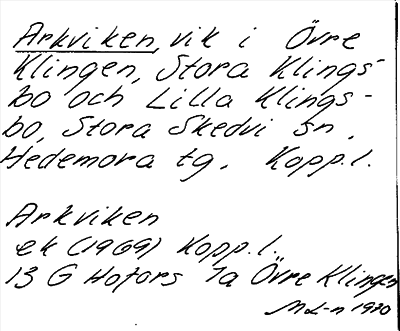 Arkviken, vik i Övre
Klingen, Stora Klings-
bo och Lilla Klings-
bo, Stora Skedvi sn,
Hedemora tg. Kopp. l.
Arkviken
ek (1969) Kopp. l.
13 G Hofors 7a Övre Klingen
ML-n 1970